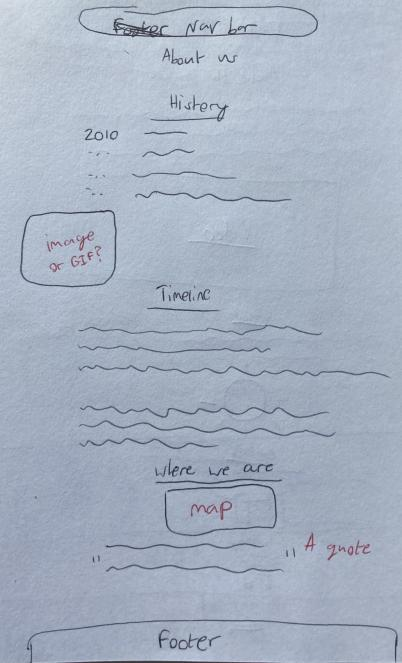 Nav bar
About us
History
2010
image
or GIF?
Timeline
where we are
map
" " A quote
Footer